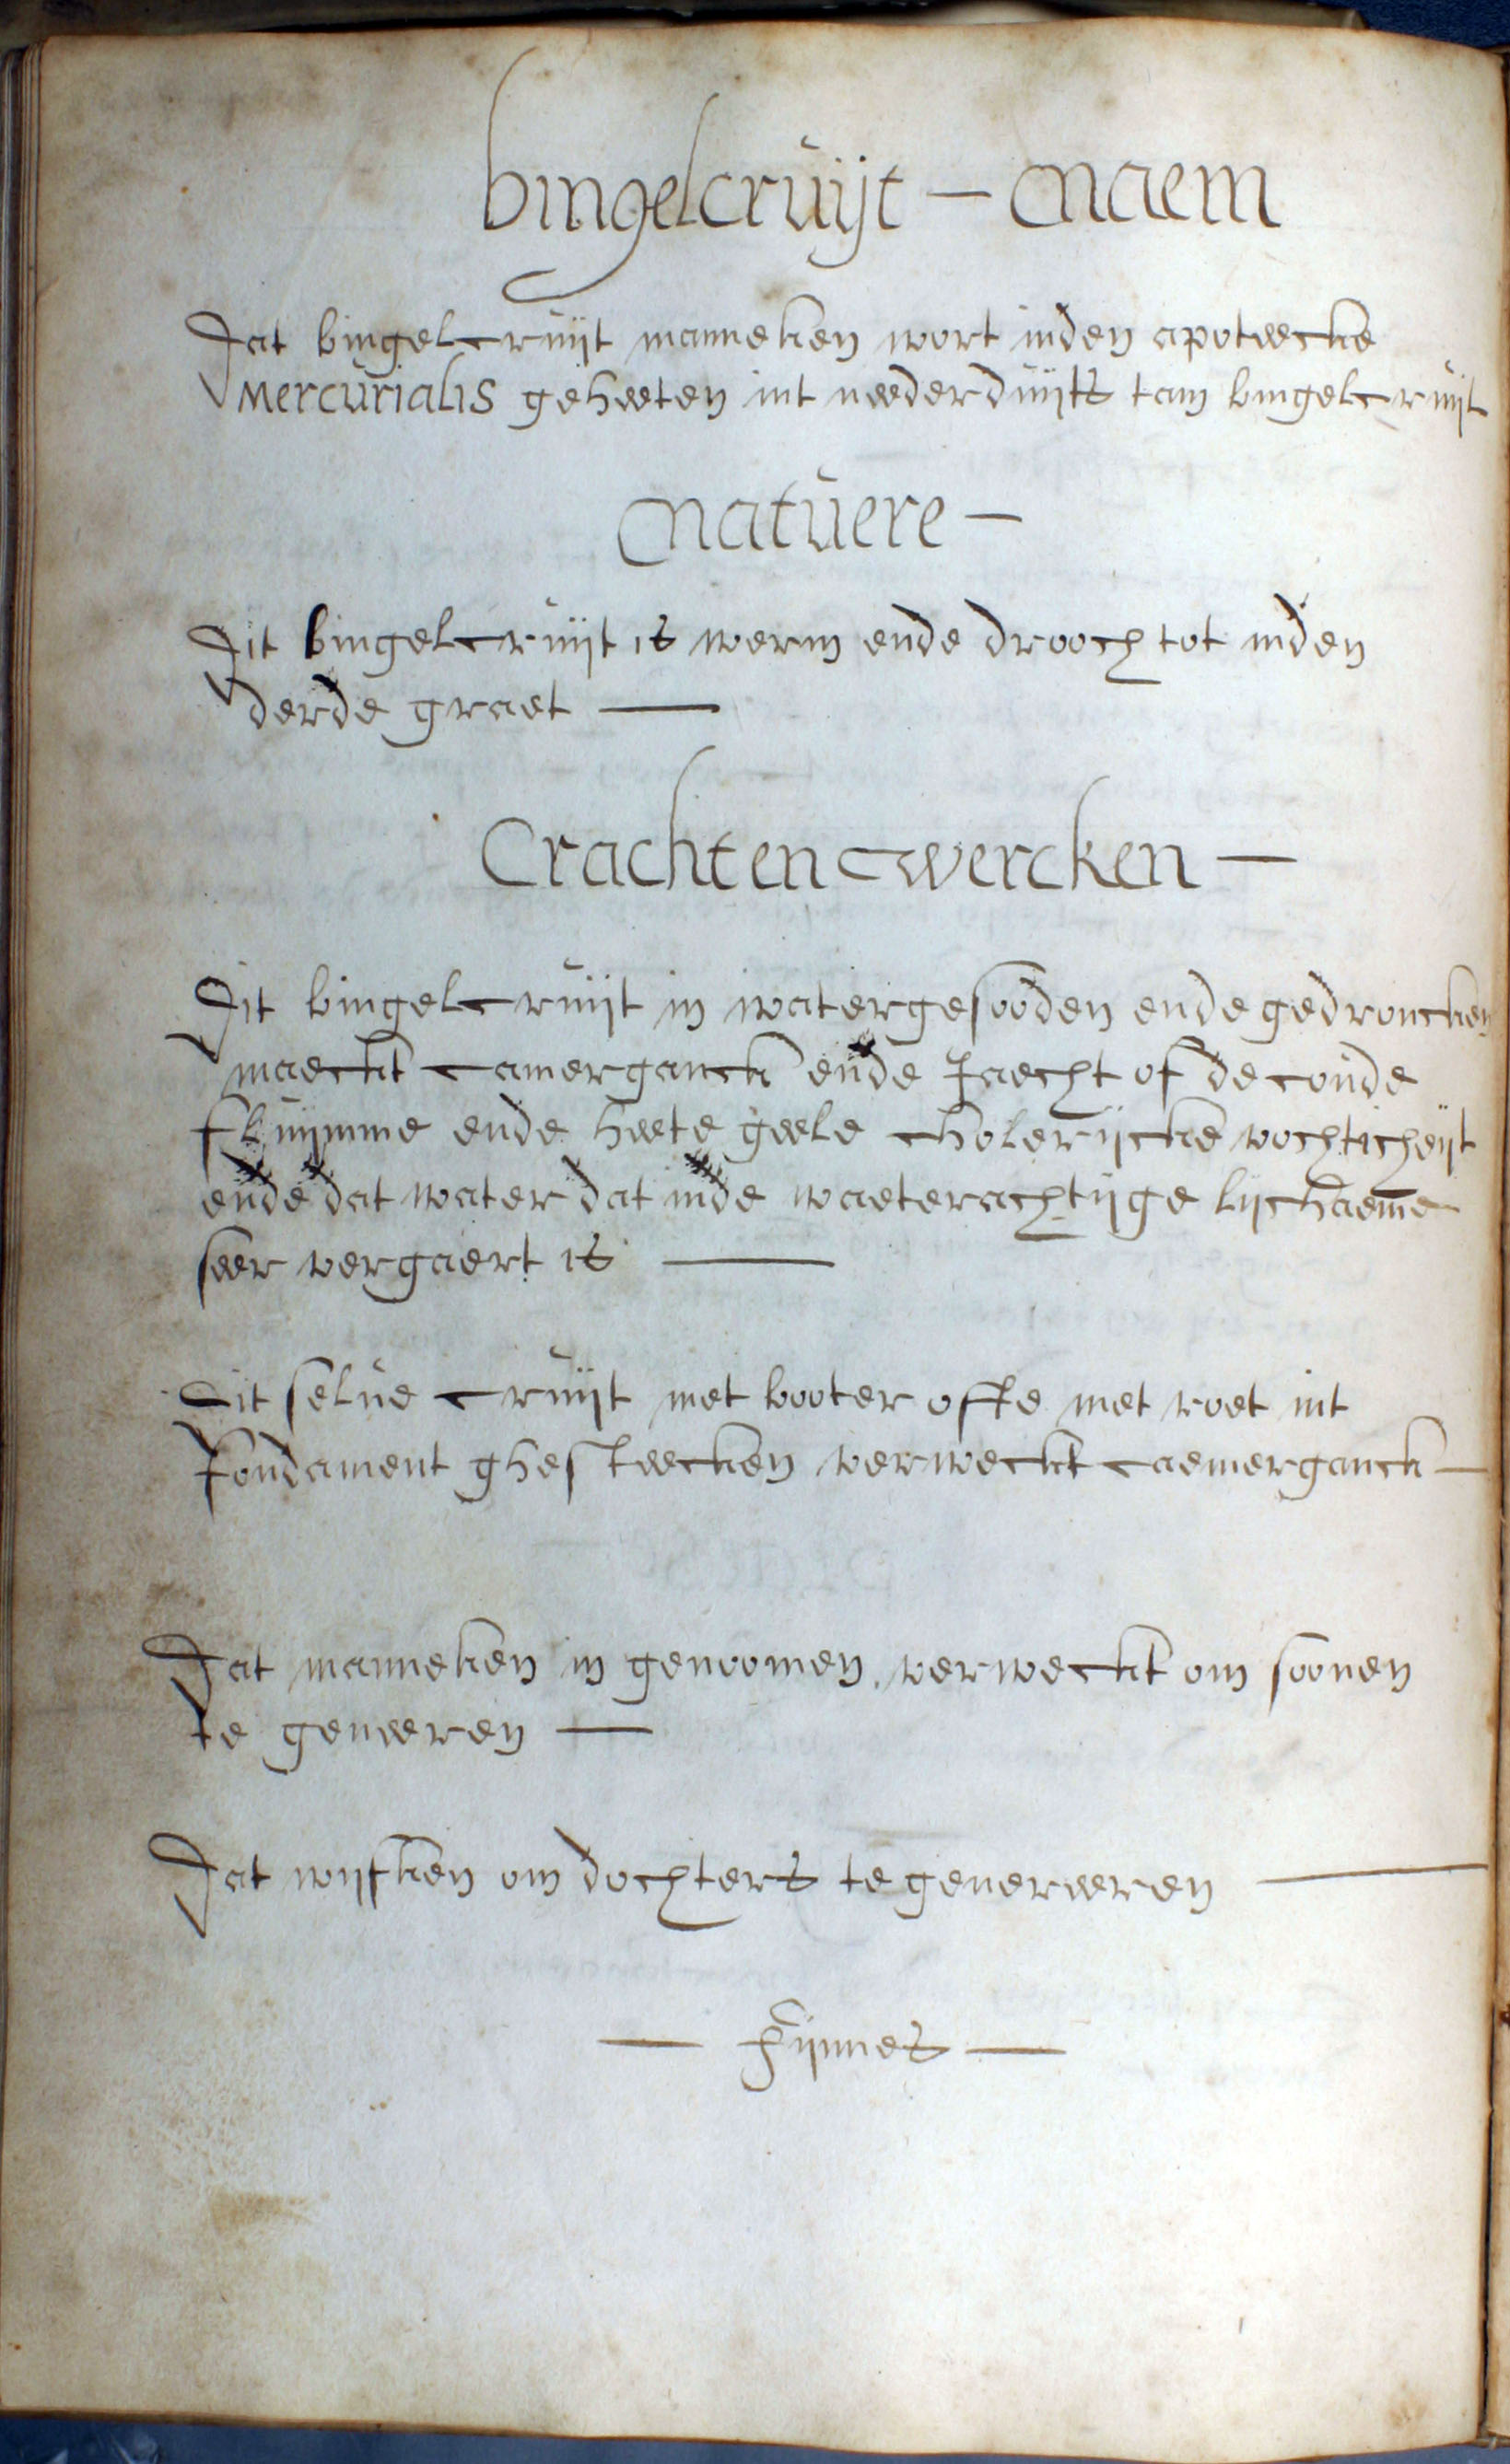 bingelcruijt – Naem
Dat bingelcruijt manneken wort inden apoteecke
Mercurialis geheeten int neederduijts tam bingelcruijt
Natuere –
Dit bingelcruijt is werm ende drooch tot inden
derde graet —
Crachten = wercken –
Dit bingelcruijt in water gesooden ende gedroncken
maeckt camerganck ende Jaecht of de coude
fluijmme ende heete geele cholerijcke vochticheijt
ende dat water dat inde waeterachtijge lijchaeme
seer vergaert is —
Dit selue cruijt met booter ofte met roet int
Fondament ghesteecken verweckt caemerganck –
Dat manneken in genoomen verweckt om soonen
te geneeren —
Dat wijfken om dochters te genereeren —
— Fijnnes —